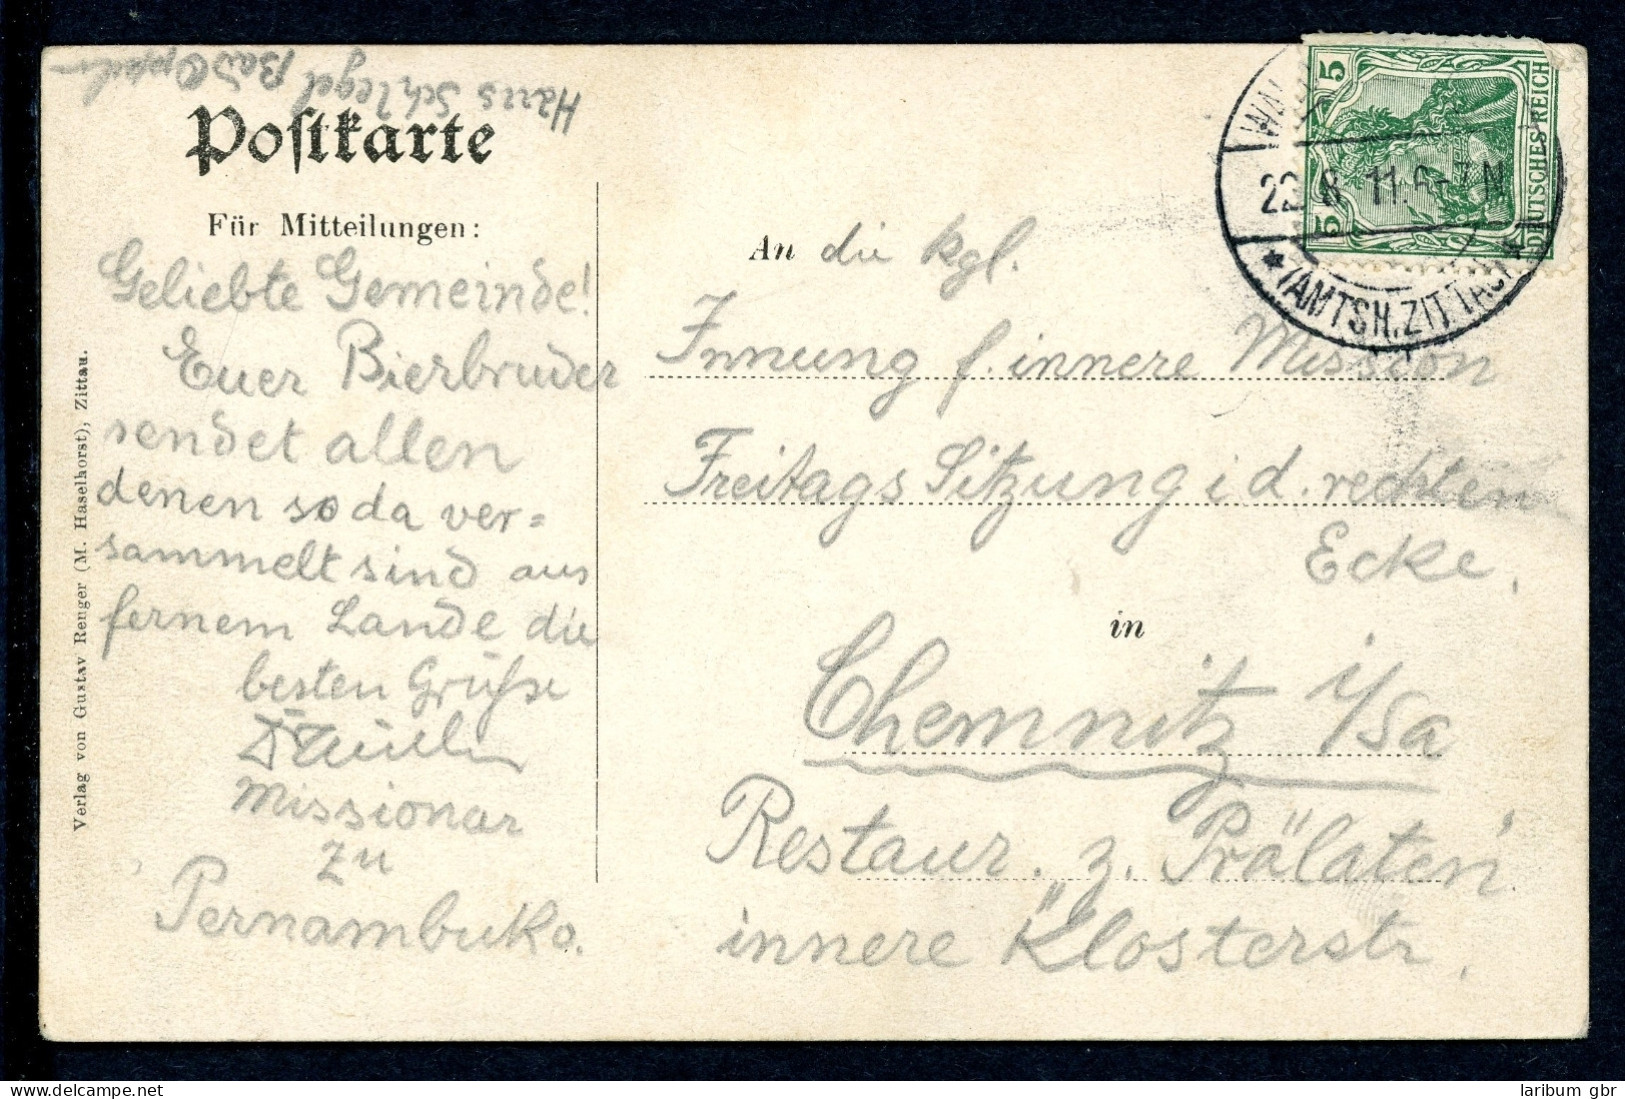 Hans Schlegel Bad
Postkarte
Für Mitteilungen:
Geliebte Gemeinde!
Euer Bierbruder
sendet allen
denen so da ver=
sammelt sind aus
fernem Lande die
besten Grüße
Missionar
zu
Pernambuko.
Verlag von Gustav Renger (M. Haselhorst), Zittau.
An die kgl.
Innung f. innere Mission
Freitags Sitzung i d. rechten
Ecke,
in
Chemnitz i/Sa
Restaur. z. Prälaten'
innere Klosterstr.
5 5
DEUTSCHES REICH
22.8.11. 6-7N
* (AMTSH. ZITTAU) *
laribum gbr